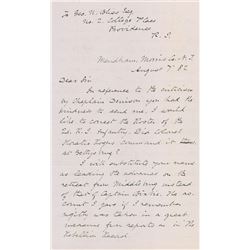 To Geo. N. Bliss Esq
No. 2 College Place
Providence
R. I.
Mendham, Morris Co. N.J.
August 7th 82
Dear Sir
In reference to the criticism
by Chaplain Denison you had the
kindness to send me, I would
like to correct the Roster of the
2d. R. I. Infantry. Did Colonel
Horatio Rogers command it
at Gettysburg?
I will substitute your name
as leading the advance on the
retreat from Middleburg instead
of that of Captain The ac-
count I gave if I remember
rightly was taken in a great
measure from reports as in the
Rebellion Record.